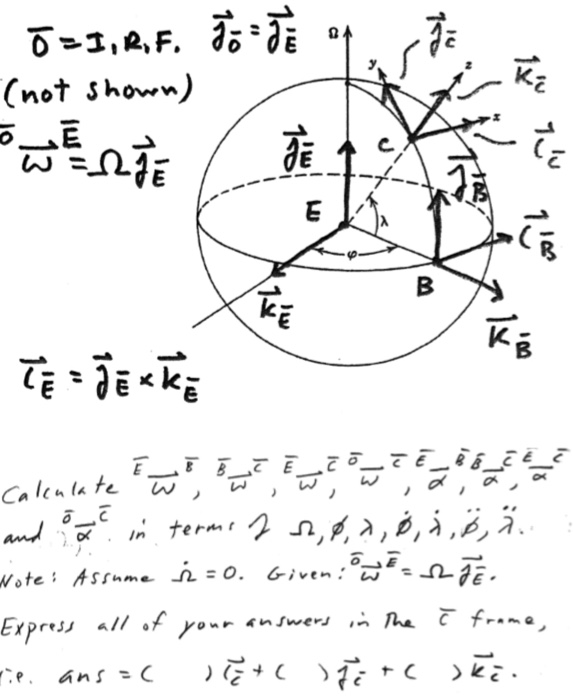 O̅ = I.R.F. j⃗_O̅ = j⃗_E̅
(not shown)
^O̅ ω⃗ ^E̅ = Ω j⃗_E̅
Ω
y
j⃗_C̅
z
k⃗_C̅
x
i⃗_C̅
C
j⃗_E̅
j⃗_B̅
E
λ
φ
B
i⃗_B̅
k⃗_E̅
k⃗_B̅
i⃗_E̅ = j⃗_E̅ × k⃗_E̅
Calculate ^E̅ ω⃗ ^B̅, ^B̅ ω⃗ ^C̅, ^E̅ ω⃗ ^C̅, ^O̅ ω⃗ ^C̅, ^E̅ α⃗ ^B̅, ^B̅ α⃗ ^C̅, ^E̅ α⃗ ^C̅
and, ^O̅ α⃗ ^C̅ in terms of Ω, ϕ, λ, ϕ̇, λ̇, ϕ̈, λ̈.
Note: Assume Ω̇ = 0. Given: ^O̅ ω⃗ ^E̅ = Ω j⃗_E̅.
Express all of your answers in the C̅ frame,
i.e. ans = ( ) i⃗_C̅ + ( ) j⃗_C̅ + ( ) k⃗_C̅.